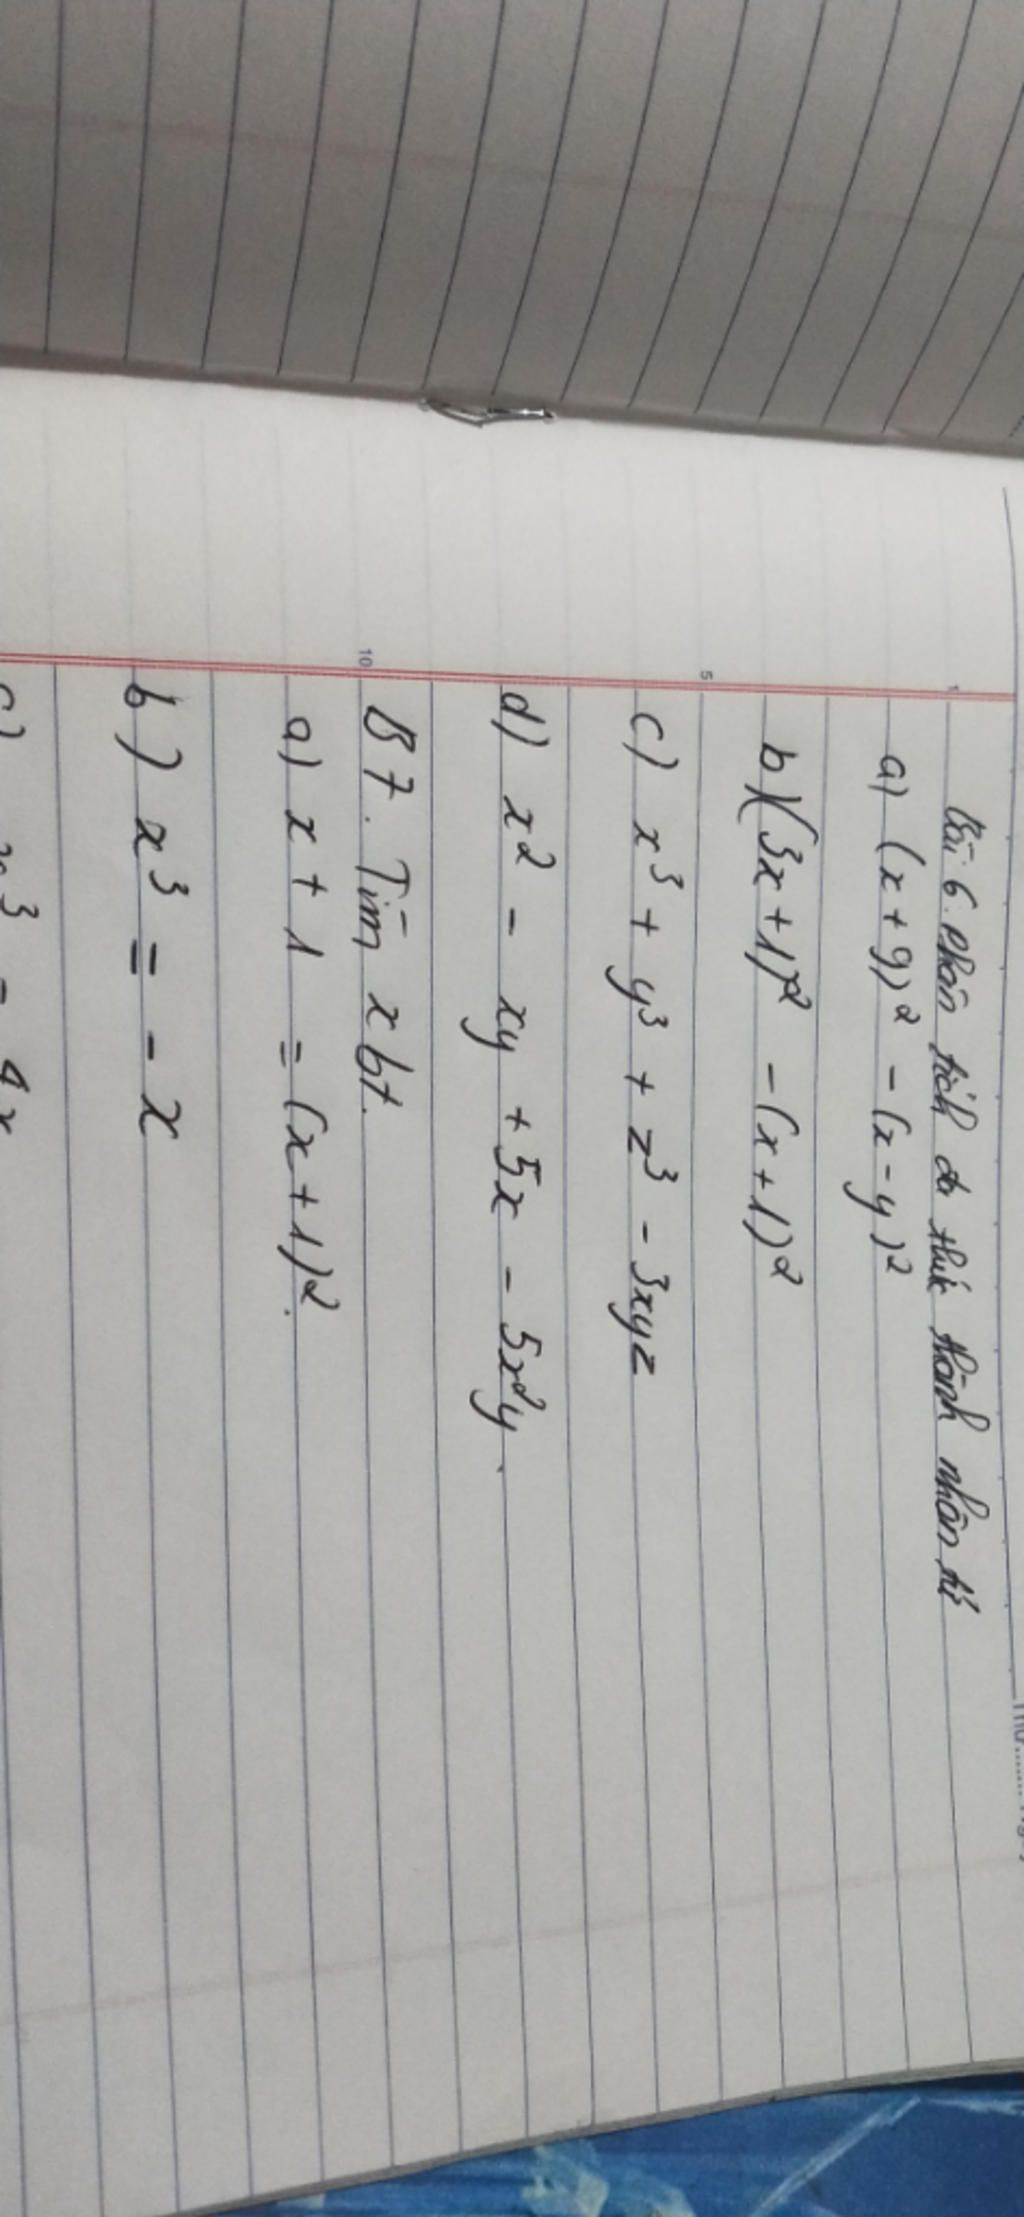 Bài 6. Phân tích đa thức thành nhân tử
a) (x + y)² - (x - y)²
b) (3x + 1)² - (x + 1)²
c) x³ + y³ + z³ - 3xyz
d) x² - xy + 5x - 5x²y.
B7. Tìm x bt.
a) x + 1 = (x + 1)².
b) x³ = - x
1
5
10